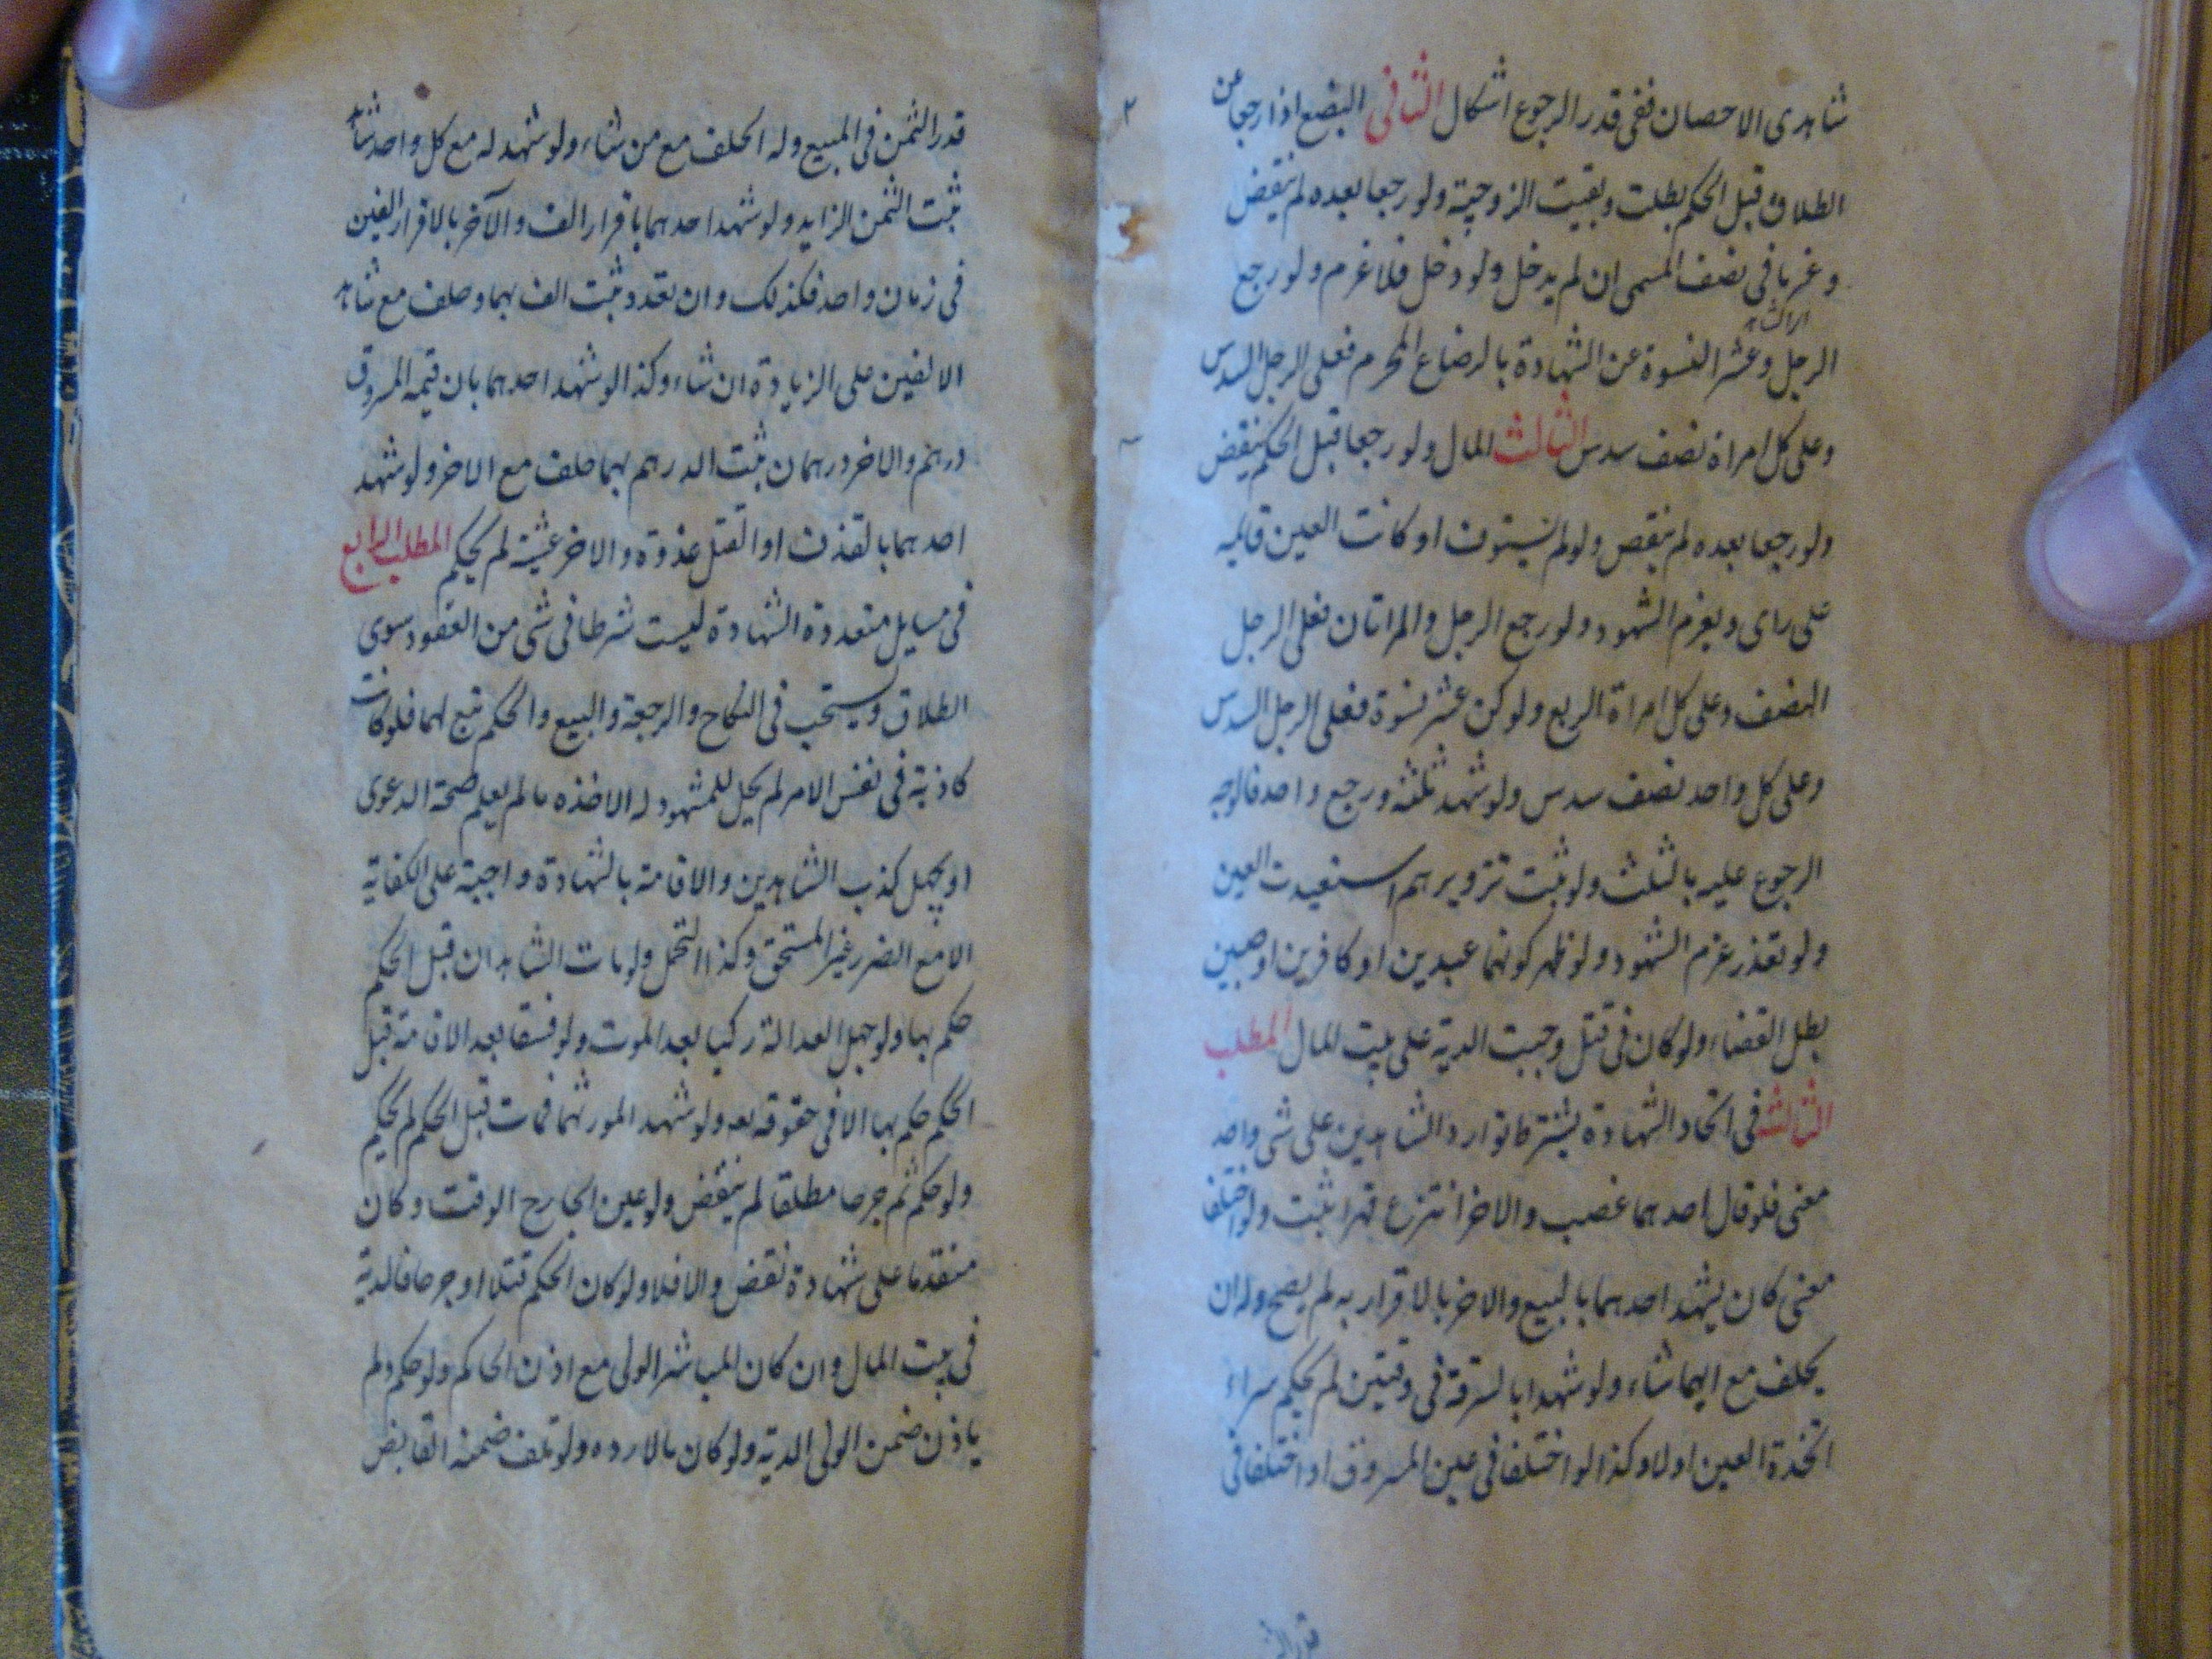 شاهدى الاحصان ففى قدر الرجوع اشكال الثانى البضع اذا رجعا عن
الطلاق قبل الحكم بطلت وبقيت الزوجية ولو رجعا بعده لم ينقض
وغرما فى نصف المسمى ان لم يدخل ولو دخل فلا غرم ولو رجع
الرجل وعشر النسوة عن الشهادة بالرضاع المحرم فعلى الرجل السدس
وعلى كل امراة نصف سدس الثالث المال ولو رجعا قبل الحكم ينقض
ولو رجعا بعده لم ينقض ولو لم يستوف او كانت العين قايمه
على راى ويغرم الشهود ولو رجع الرجل والمراتان فعلى الرجل
النصف وعلى كل امراة الربع ولو كن عشر نسوة فعلى الرجل السدس
وعلى كل واحد نصف سدس ولو شهد ثلثة ورجع واحد فالوجه
الرجوع عليه بالثلث ولو ثبت تزويرهم استعيدت العين
ولو تعذر غرم الشهود ولو ظهر كونهما عبدين او كافرين او صبيين
بطل القضاء ولو كان فى قتل وجبت الدية على بيت المال المطلب
الثالث فى اتحاد الشهادة يشترط توارد الشاهدين على شى واحد
معنى فلو قال احدهما غصب والاخر انتزع قهرا ثبت ولو اختلفا
معنى كان يشهد احدهما بالبيع والاخر بالاقرار به لم يصح وله ان
يحلف مع ايهما شاء ولو شهدا بالسرقة فى وقتين لم يحكم سواء
اتحدة العين اولا وكذا لو اختلفا فى عين المسروق او اختلفا فى
قدر الثمن فى المبيع وله الحلف مع من شاء ولو شهد له مع كل واحد شاهد
ثبت الثمن الزايد ولو شهد احدهما باقرار الف والآخر بالاقرار الفين
فى زمان واحد فكذلك وان تعدد ثبت الف بهما وحلف مع شاهد
الالفين على الزيادة ان شاء وكذا لو شهد احدهما بان قيمه المسروق
درهم والاخر درهمان ثبت الدرهم بهما حلف مع الاخر ولو شهد
احدهما بالقذف او القتل غدوة والاخر عشية لم يحكم المطلب الرابع
فى مسايل متعددة الشهادة ليست شرطا فى شى من العقود سوى
الطلاق ويستحب فى النكاح والرجعة والبيع والحكم تبع لهما فلو كانت
كاذبة فى نفس الامر لم يحل للمشهود له الاخذه ما لم يعلم صحة الدعوى
او يجهل كذب الشاهدين والاقامة بالشهادة واجبة على الكفاية
الا مع الضرر غير المستحق وكذا التحمل ولو مات الشاهدان قبل الحكم
حكم بها ولو جهل العدالة زكيا بعد الموت ولو فسقا بعد الاقامة قبل
الحكم حكم بها الا فى حقوقه تعه ولو شهد المورثهما فمات قبل الحكم لم يحكم
ولو حكم ثم جرحا مطلقا لم ينقض ولو عين الجارح الوقت وكان
متقدما على شهادة نقض والا فلا ولو كان الحكم قتلا او جرحا فالدية
فى بيت المال وان كان المباشر الولى مع اذن الحاكم ولو حكم ولم
ياذن ضمن الولى الدية ولو كان مالا رده ولو تلف ضمنه القابض